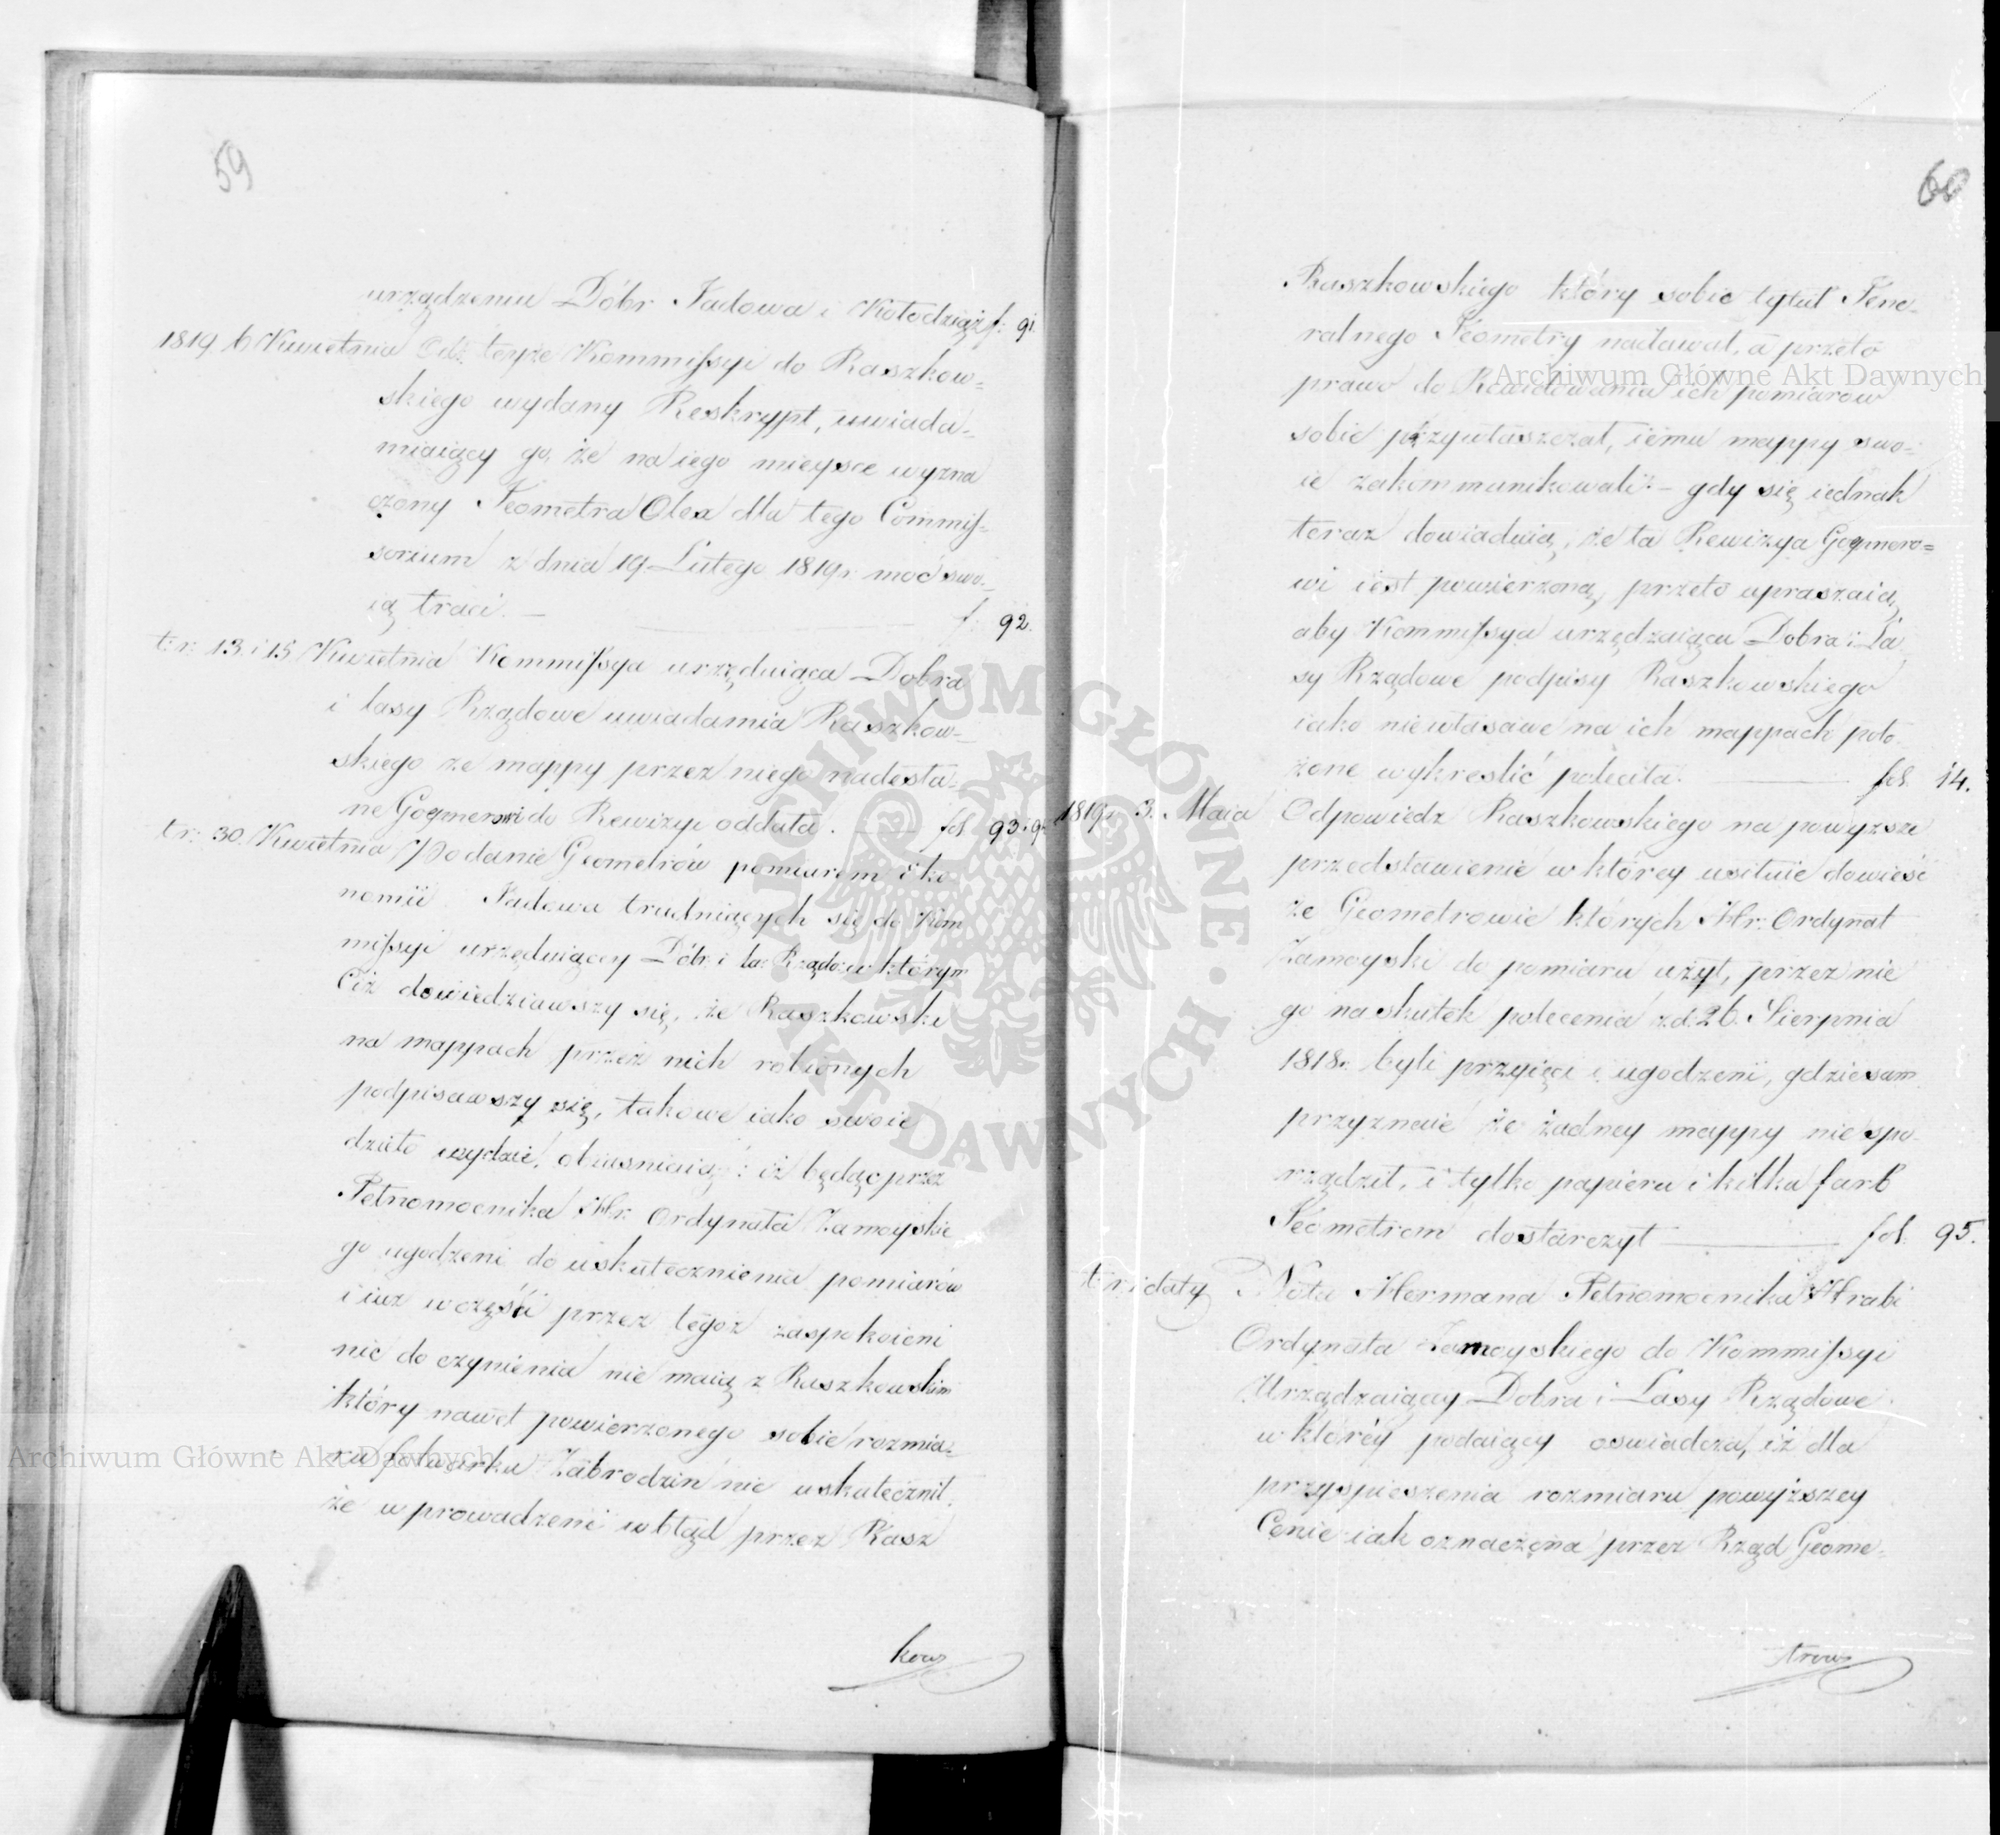 59
urządzeniu Dóbr Jadowa i Kołodziąż f: 91.
1819. 6 Kwietnia Od teyże Kommissyi do Raszkow=
skiego wydany Reskrypt, uwiada=
miaiący go, że na iego mieysce wyzna
czony Jeometra Olex dla tego Commis=
sorium z dnia 19. Lutego 1819 r. moć swo=
ią traci. — f: 92.
t: r: 13. i 15 Kwietnia Kommissya urzęduiąca Dobra
i lasy Rządowe uwiadamia Raszkow=
skiego ze mappy przez niego nadesła=
ne do Rewizyi oddała. — fol 93. i 9
t: r: 30. Kwietnia Podanie Geometrów pomiarem Eko
nomii Jadowa trudniących się do Kom
missyi urzęduiącey Dóbr i la: Rządo: w którym
Ciż dowiedziawszy się, że Raszkowski
na mappach przez nich robionych
podpisawszy się, takowe iako swoie
dzieło wydaie, obiasniaią: iż będąc przez
Pełnomocnika Hr. Ordynata Zamoyskie
go ugodzeni do uskutecznienia pomiarów
i iuz w części przez tegoż zaspokoieni
nic do czynienia nie maią z Raszkowskim
który nawet powierzonego sobie rozmia=
ru folwarku Zabrodzin nie uskutecznił,
że wprowadzeni w błąd przez Rasz
kow
60
Raszkowskiego który sobie tytuł Jene=
ralnego Jeometry nadawał, a przeto
prawo do Rewidowania ich pomiarów
sobie przywłaszczał, iemu mappy swo=
ie zakommunikowali. — gdy się iednak
teraz dowiaduią, że ta Rewizya
wi iest powierzoną, przeto upraszaią,
aby Kommissya urzędzaiąca Dobra i La
sy Rządowe podpisy Raszkowskiego
iako niewłasawe na ich mappach poło
żone wykreślić poleciła. — fol. 14.
1819 r 3. Maia Odpowiedz Raszkowskiego na powyzsze
przedstawienie w którey usiłuie dowieść
że Geometrowie których Hr: Ordynat
Zamoyski do pomiaru użył, przez nie
go na skutek polecenia z d. 26. Sierpnia
1818 r. byli przyięci i ugodzeni, gdzie sam
przyznaie że żadney mappy nie spo=
rządził, i tylko papieru i kilka farb
Jeometrom dostarczył — fol. 95.
t: r: i daty Nota Hermana Pełnomocnika Hrabi
Ordynata Zamoyskiego do Kommissyi
Urządzaiącey Dobra i Lasy Rządowe
w którey podaiący oswiadcza, iż dla
przyspieszenia rozmiaru powyższey
Cenie iak oznaczona przez Rząd Geome=
trow
Archiwum Główne Akt Dawnych
Archiwum Główne Akt Dawnych
ARCHIWUM GŁÓWNE · AKT DAWNYCH ·